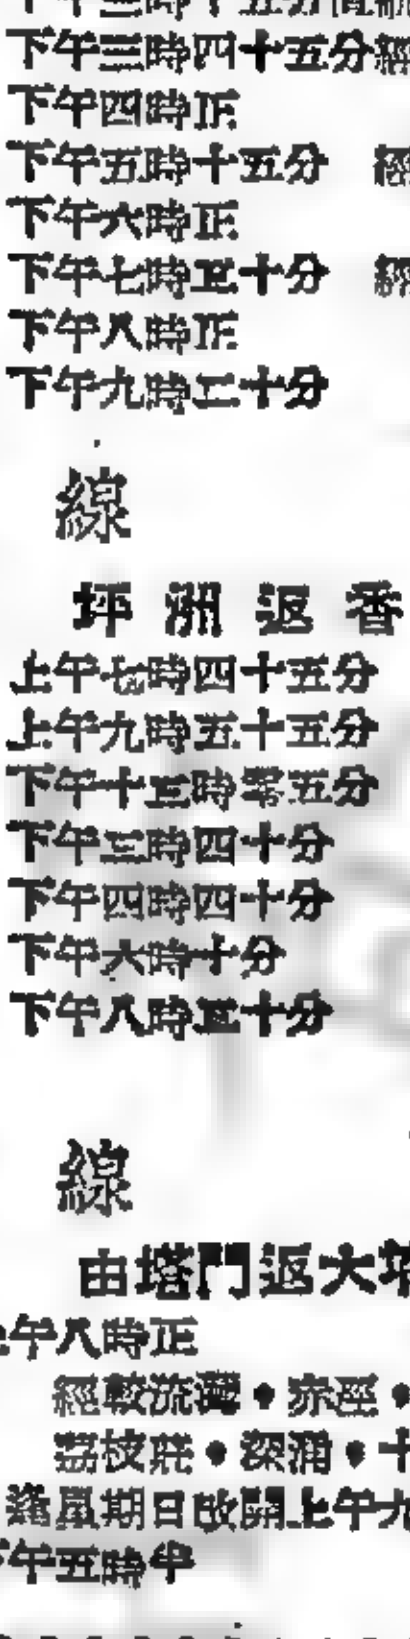 下午三時四十五分經
下午四時正
下午五時十五分 經
下午六時正
下午七時五十分 經
下午八時正
下午九時二十分
線
坪洲返香
上午七時四十五分
上午九時五十五分
下午十二時零五分
下午三時四十分
下午四時四十分
下午六時十分
下午八時五十分
線
由塔門返大埔
上午八時正
經較流灣•赤徑•
荔枝莊•深涌•十
逢星期日改開上午九
下午五時半